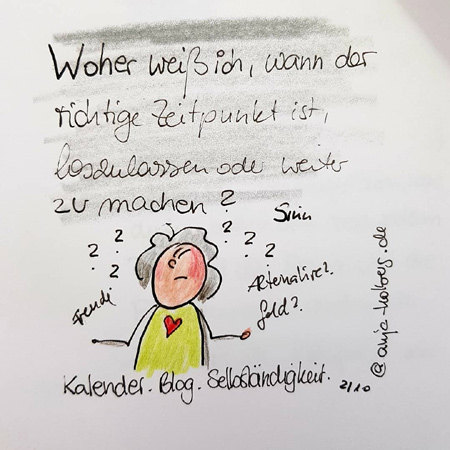 Woher weiß ich, wann der
richtige Zeitpunkt ist,
loszulassen oder weiter
zu machen?
Sinn
? ? ? ? ? ? ?
Freude
Alternative?
Geld?
Kalender. Blog. Selbständigkeit.
2/10
@anja-kolberg.de